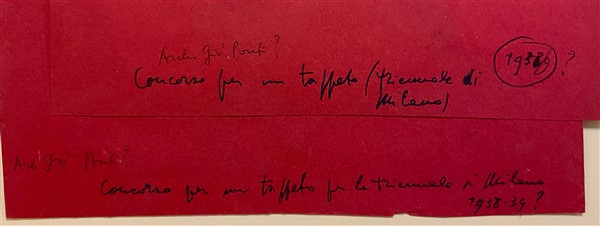 Arch Giò Ponti?
Concorso per un tappeto (triennale di
Milano)
1938 39?
Arch Giò Ponti?
Concorso per un tappeto per la triennale di Milano
1938 39?